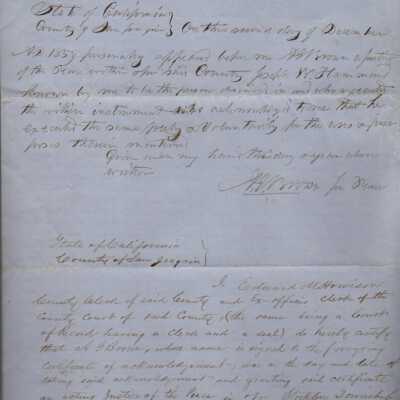 State of California
County of San Joaquin } On this second day of December
AD 1859 personally appeared before me A G Brown a Justice
of the Peace within & for said County Joseph W. Hammond
known by me to be the person described in and who executed
the within instrument who acknowledged to me that he
executed the same freely & Voluntarily for the uses & pur
poses therein mentioned
Given under my hand this day & year above
written
A G Brown Jus Peace
State of California
County of San Joaquin }
I Edward M Howison
County Clerk of said County and Ex officio Clerk of the
County Court of said County (the same being a Court
of Record having a Clerk and a seal) do hereby certify
that A G Brown, whose name is signed to the foregoing
certificate of acknowledgement, was on the day and date of
taking said acknowledgement and granting said certificate
an acting Justice of the Peace in & for Township